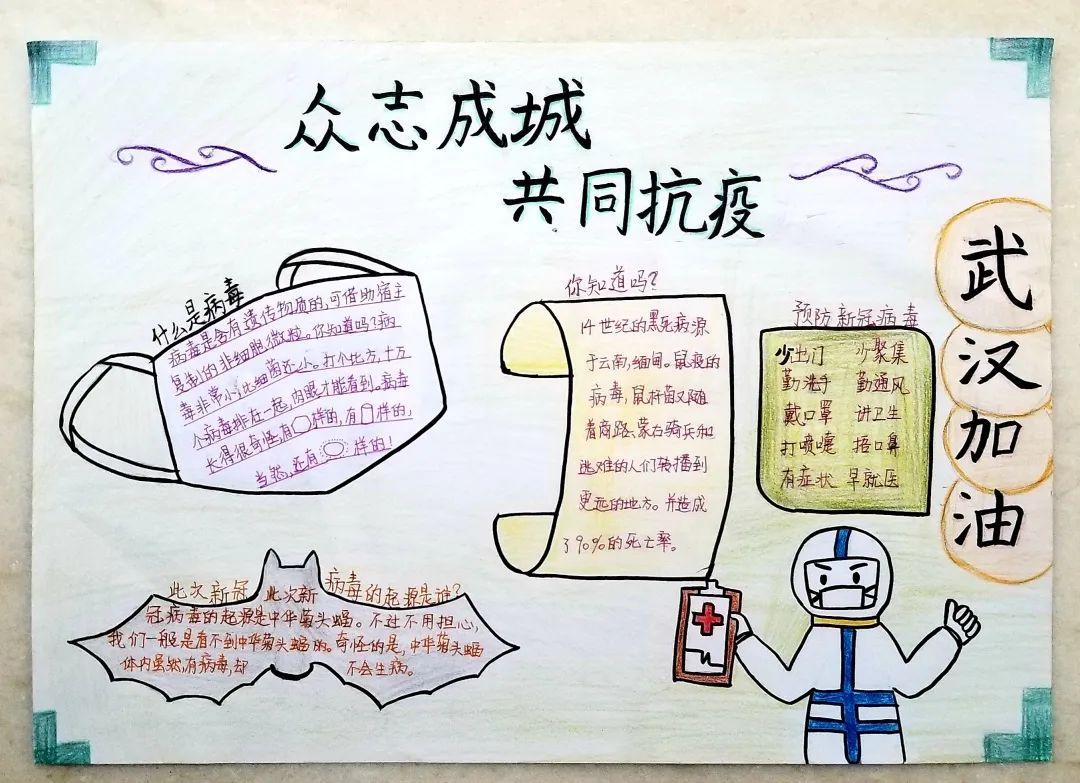 众志成城
共同抗疫
武
汉
加
油
什么是病毒
病毒是含有遗传物质的,可借助宿主
复制的非细胞微粒。你知道吗?病
毒非常小,比细菌还小。打个比方,十万
个病毒排在一起,肉眼才能看到。病毒
长得很奇怪,有 样的,有 样的,
当然,还有 样的!
你知道吗?
14世纪的黑死病源
于云南,缅甸。鼠疫的
病毒,鼠杆菌又随
着商路、蒙古骑兵和
逃难的人们转播到
更远的地方。并造成
了90%的死亡率。
预防新冠病毒
少出门 少聚集
勤洗手 勤通风
戴口罩 讲卫生
打喷嚏 捂口鼻
有症状 早就医
此次新冠 病毒的起源是谁?
此次新
冠病毒的起源是中华菊头蝠。不过不用担心,
我们一般是看不到中华菊头蝠的。奇怪的是,中华菊头蝠
体内虽然,有病毒,却 不会生病。